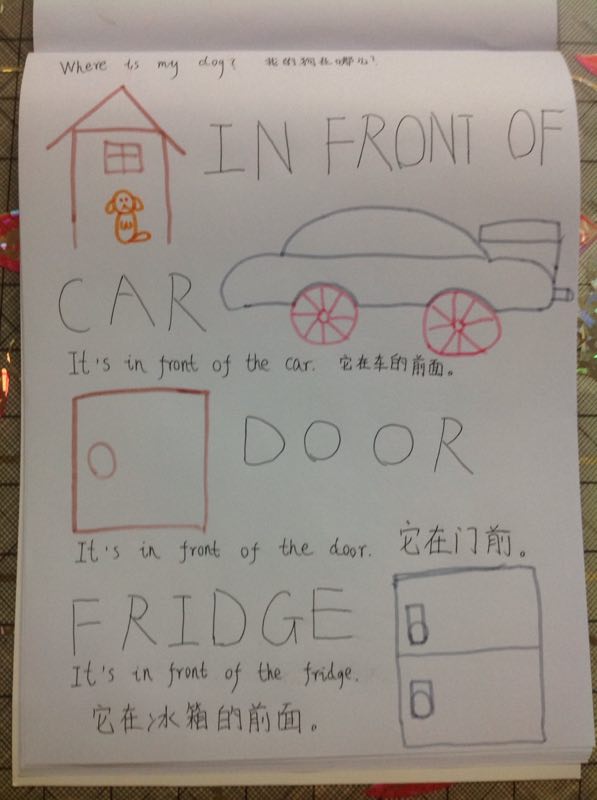 Where is my dog? 我的狗在哪儿?
IN FRONT OF
CAR
It's in front of the car. 它在车的前面。
DOOR
It's in front of the door. 它在门前。
FRIDGE
It's in front of the fridge.
它在冰箱的前面。